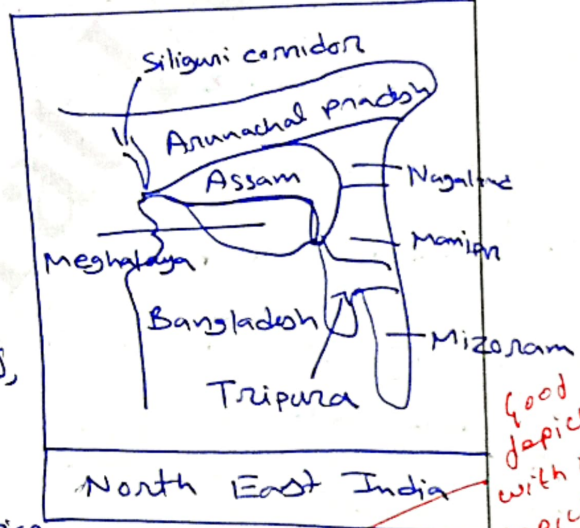 Siliguri corridor
Arunachal pradesh
Assam
Nagaland
Manipur
Meghalaya
Bangladesh
Mizoram
Tripura
Good
depic
with
North East India